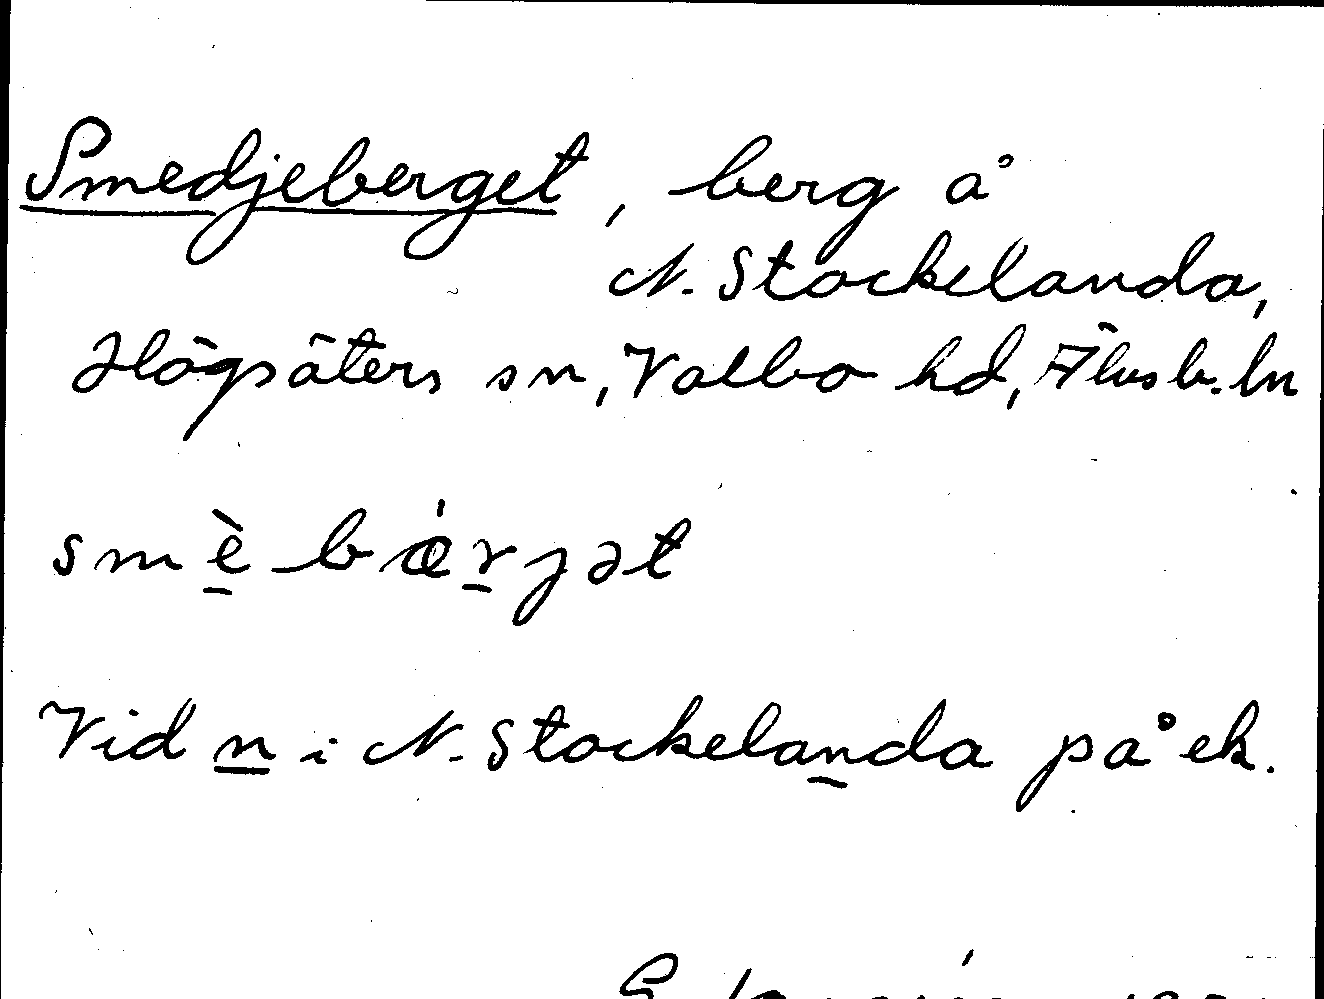 Smedjeberget, berg å
N. Stockelanda,
Högsäters sn, Valbo hd, Älvsb. ln
smè̱bǽṟjət
Vid n i N. Stockelanda på ek.